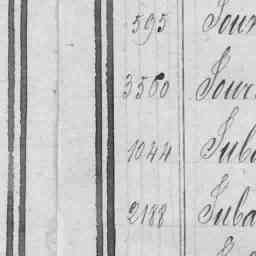 595 Four
3560 Four
1044 Juba
2188 Juba